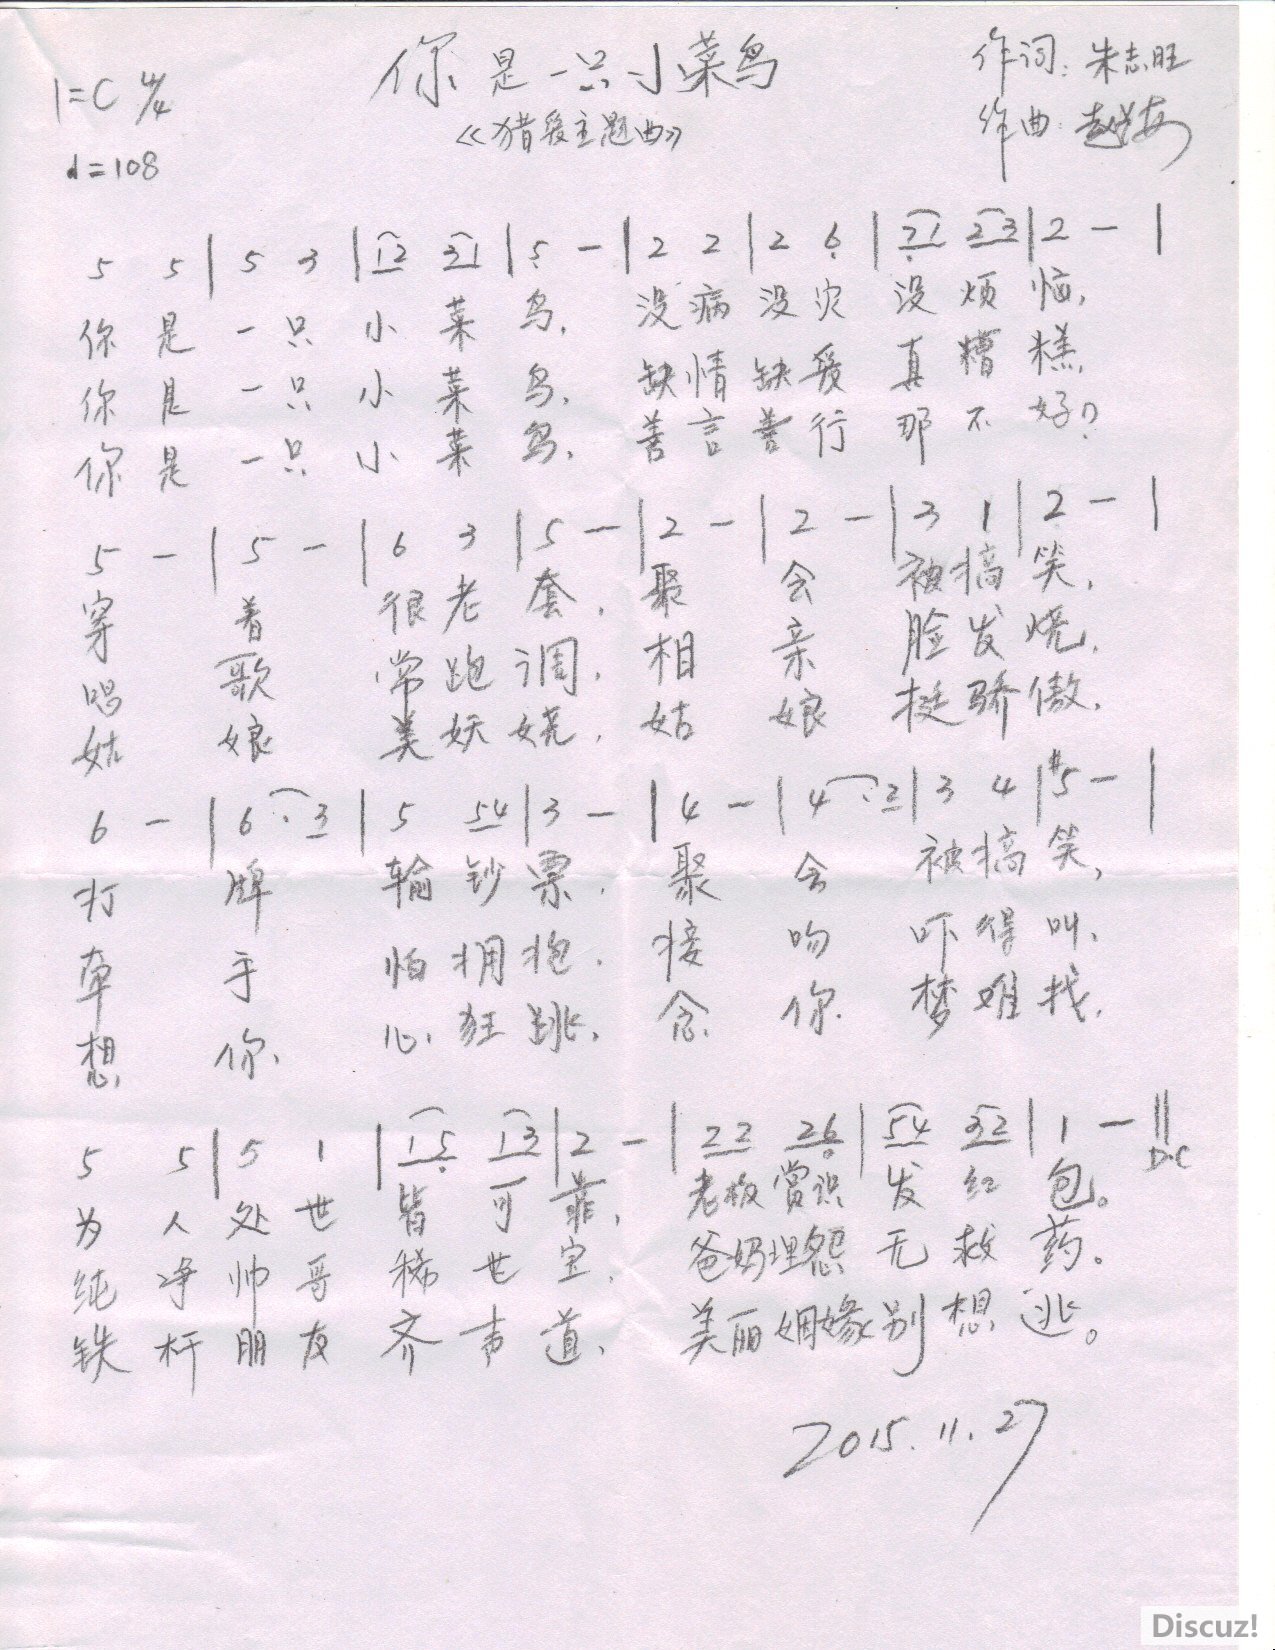 你是一只小菜鸟
作词：朱志旺
1=C 4/4
《猎爱主题曲》
作曲：
♩=108
5 5 | 5 3 | 12 31 | 5 － | 2 2 | 2 6 | 21 23 | 2 － |
你是一只小菜鸟，没病没灾没烦恼，
你是一只小菜鸟，缺情缺爱真糟糕，
你是一只小菜鸟，善言善行那不好？
5 － | 5 － | 6 3 | 5 － | 2 － | 2 － | 3 1 | 2 － |
穿着很老套，聚会被搞笑，
唱歌常跑调，相亲脸发烧，
姑娘美妖娆，姑娘挺骄傲，
6 － | 6 · 3 | 5 54 | 3 － | 4 － | 4 · 2 | 3 4 | #5 － |
打牌输钞票，聚会被搞笑，
牵手怕拥抱，接吻吓得叫，
想你心狂跳，念你梦难找，
5 5 | 5 1 | 15 13 | 2 － | 22 26 | 54 32 | 1 － ‖
D.C
为人处世皆可靠，老板赏识发红包。
纯净帅哥稀世宝，爸妈埋怨无救药。
铁杆朋友齐声道，美丽姻缘别想逃。
2015.11.27
Discuz!